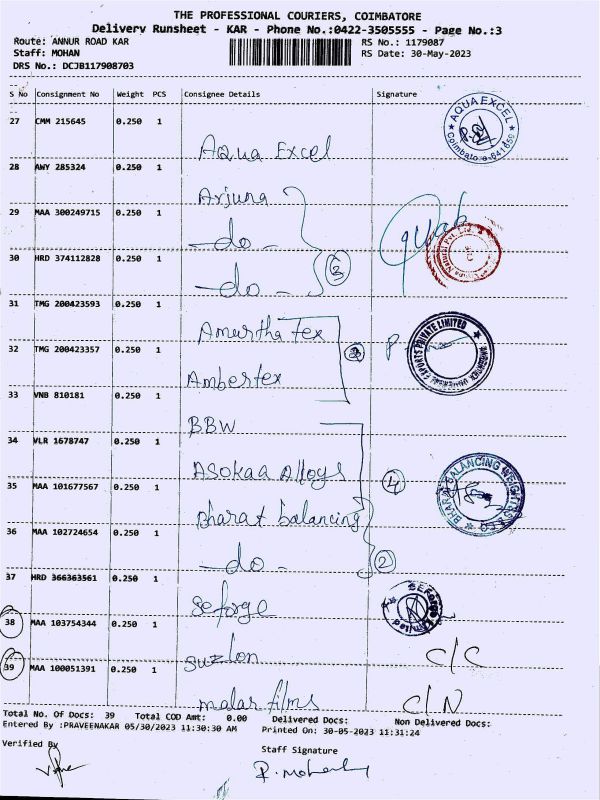 THE PROFESSIONAL COURIERS, COIMBATORE
Delivery Runsheet - KAR - Phone No.:0422-3505555 - Page No.:3
Route: ANNUR ROAD KAR RS No.: 1179087
Staff: MOHAN RS Date: 30-May-2023
DRS No.: DCJB117908703
S No Consignment No Weight PCS Consignee Details Signature
27 CMM 215645 0.250 1
Aqua Excel
AQUA EXCEL
28 AWY 285324 0.250 1
Arjuna
29 MAA 300249715 0.250 1
do
30 HRD 374112828 0.250 1
do
3
31 TMG 200423593 0.250 1
Amurtha Tex
32 TMG 200423357 0.250 1
Ambertex
EXPORTS PRIVATE LIMITED
33 VNB 810181 0.250 1
BBW
34 VLR 1678747 0.250 1
Asokaa Alloys
4
35 MAA 101677567 0.250 1
Bharat balancing
BHARAT BALANCING WEIGHTS
36 MAA 102724654 0.250 1
do
2
37 HRD 366363561 0.250 1
Seforge
38 MAA 103754344 0.250 1
suzlon C/C
39 MAA 100051391 0.250 1
malar films C/N
Total No. Of Docs: 39 Total COD Amt: 0.00 Delivered Docs: Non Delivered Docs:
Entered By :PRAVEENAKAR 05/30/2023 11:30:30 AM Printed On: 30-05-2023 11:31:24
Verified By
Staff Signature
P. Mohan